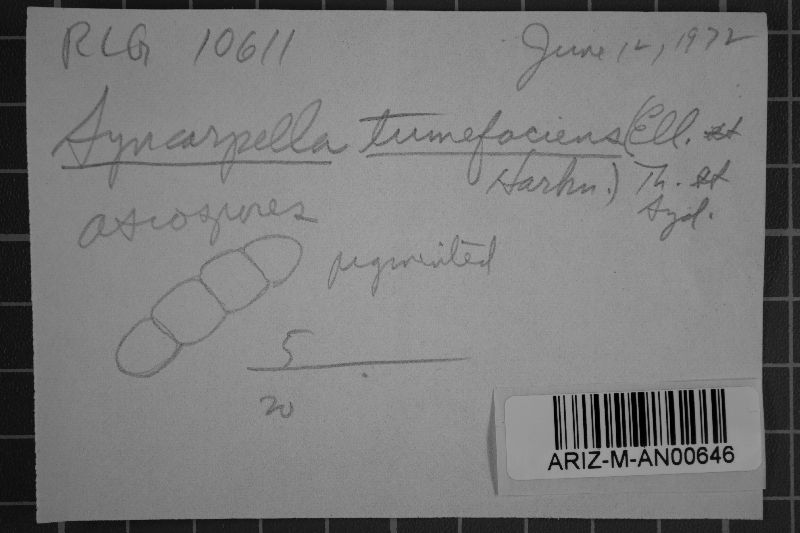 RLG 10611 June 12, 1972
Syncarpella tumefaciens (Ell. et
Harkn.) Th. et
Syd.
ascospores
pigmented
5
20
ARIZ-M-AN00646